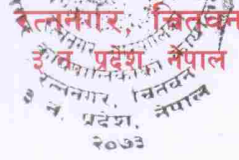 रत्ननगर, चितवन
३ नं. प्रदेश, नेपाल
रत्ननगर, चितवन
३ नं. प्रदेश, नेपाल
२०७३